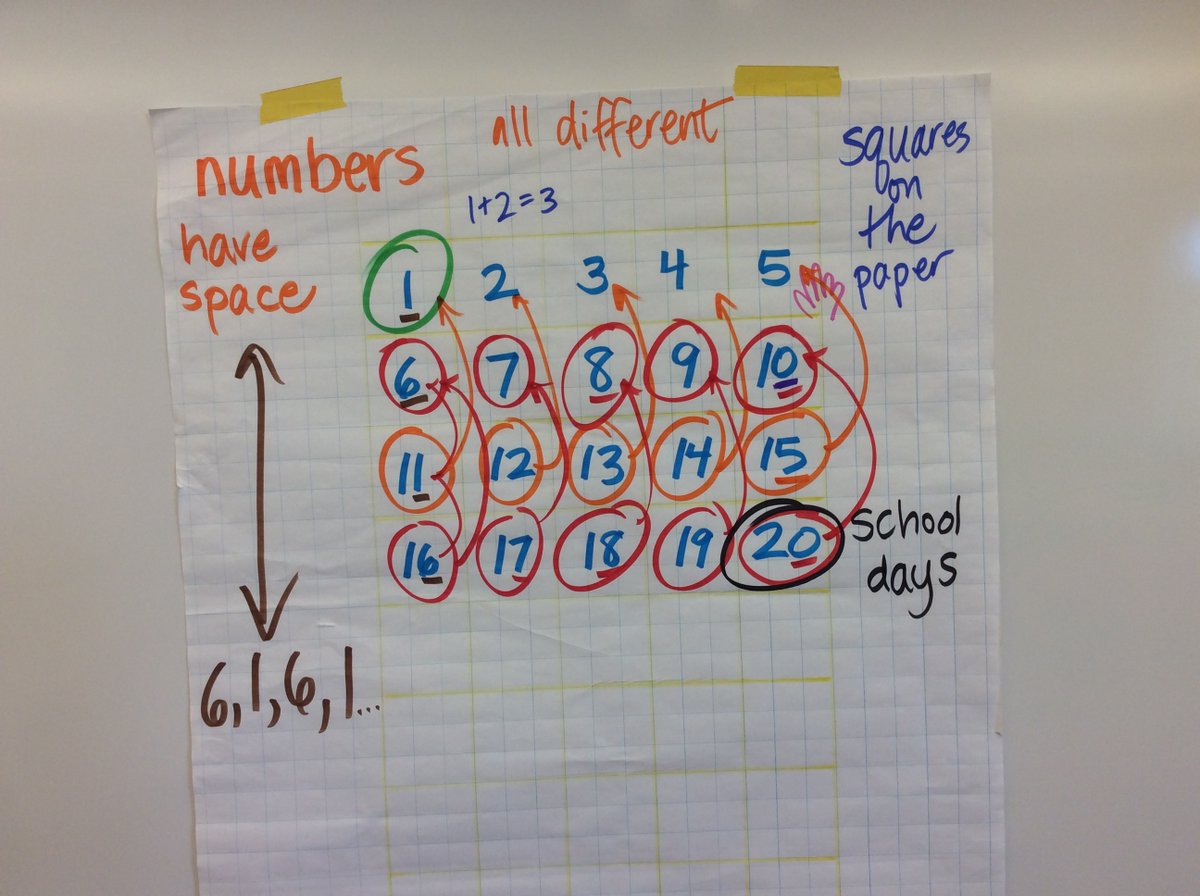 all different
numbers
have
space
squares
on
the
paper
1+2=3
1 2 3 4 5
6 7 8 9 10
11 12 13 14 15
16 17 18 19 20
school
days
6,1,6,1...